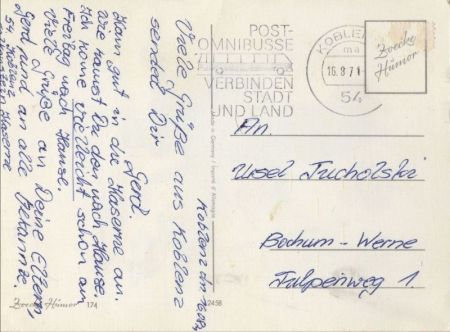 Koblenz den 16.8.71
Viele Grüße aus Koblenz
sendet Dir
Gerd.
Kam gut in die Kaserne an.
Wie kamst Du den nach Hause.
Ich kome vielleicht schon am
Freitag nach Hause.
Viele Grüße an Deine Eltern,
Gerd und an alle Bekannte.
54 Koblenz
Kaserne
POST-
OMNIBUSSE
VERBINDEN
STADT
UND LAND
KOBLENZ
ma
16.8.71
54
Zwecke
Humor
An.
Ursel Tucholski
Bochum-Werne
Tulpenweg 1.
Zwecke Humor 174